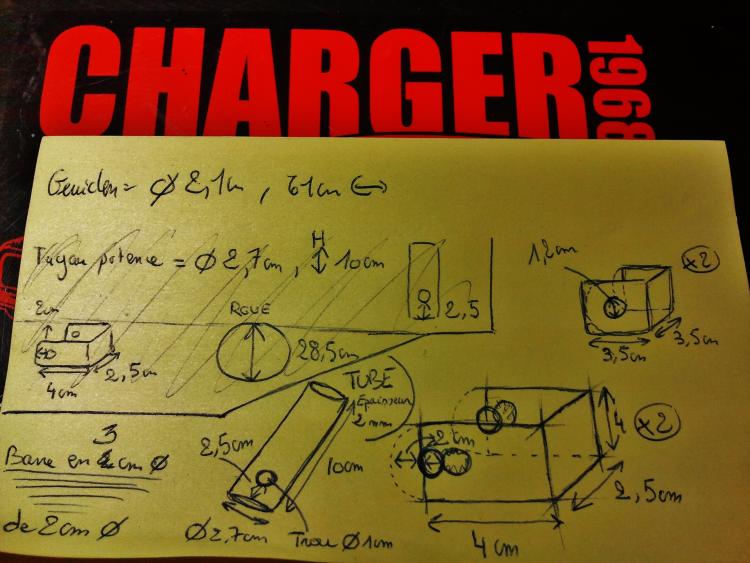 CHARGER
1968
Guidon = Ø 2,1cm , 61cm ↔
Tuyau potence = Ø 2,7cm, H ↕ 10cm
2,5
1,2cm
x2
3,5cm
3,5cm
2cm
4cm
2,5cm
ROUE
28,5cm
TUBE
Epaisseur
2 mm
2,5cm
10cm
Ø 2,7cm
Trou Ø 1cm
3
Barre en cm Ø
de 2cm Ø
2cm
4
x2
2,5cm
4cm